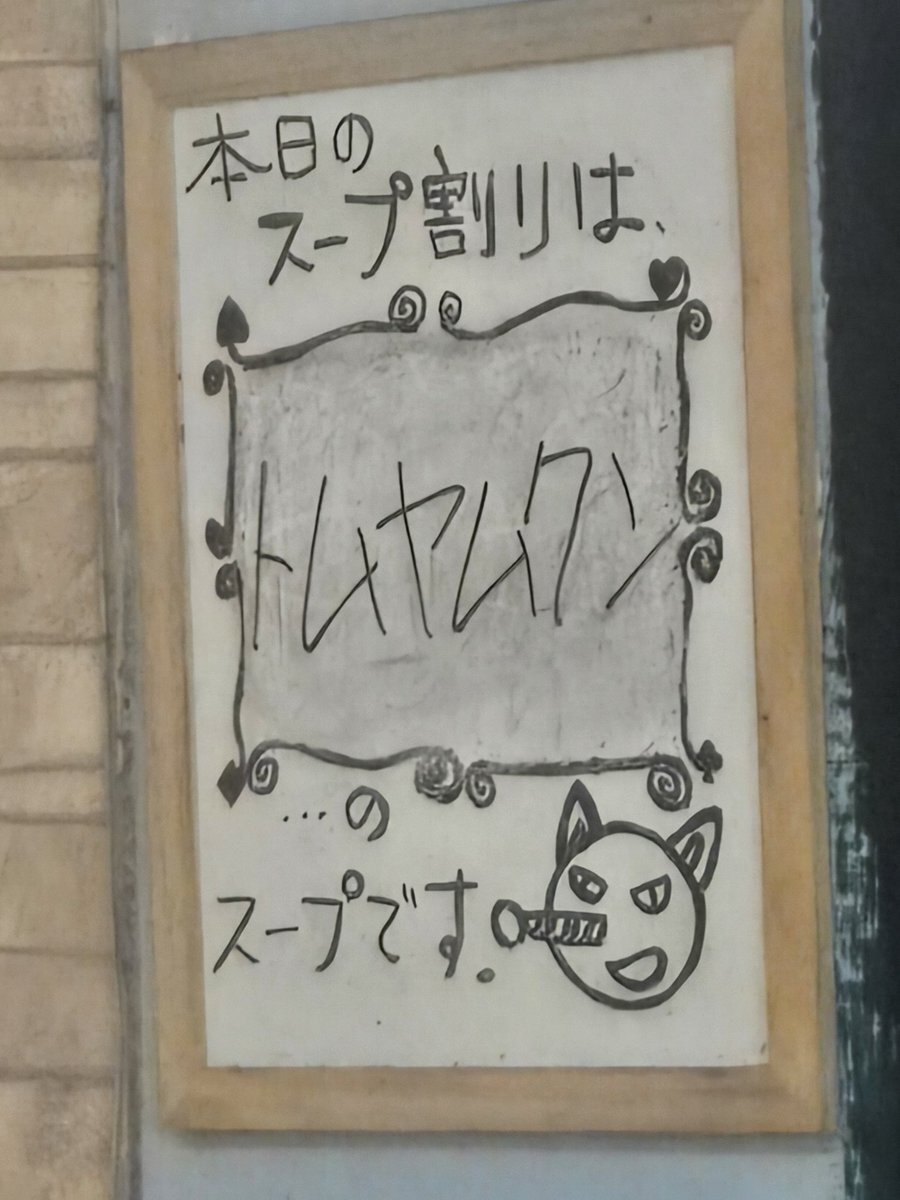 本日の
スープ割りは、
トムヤムクン
…の
スープです。